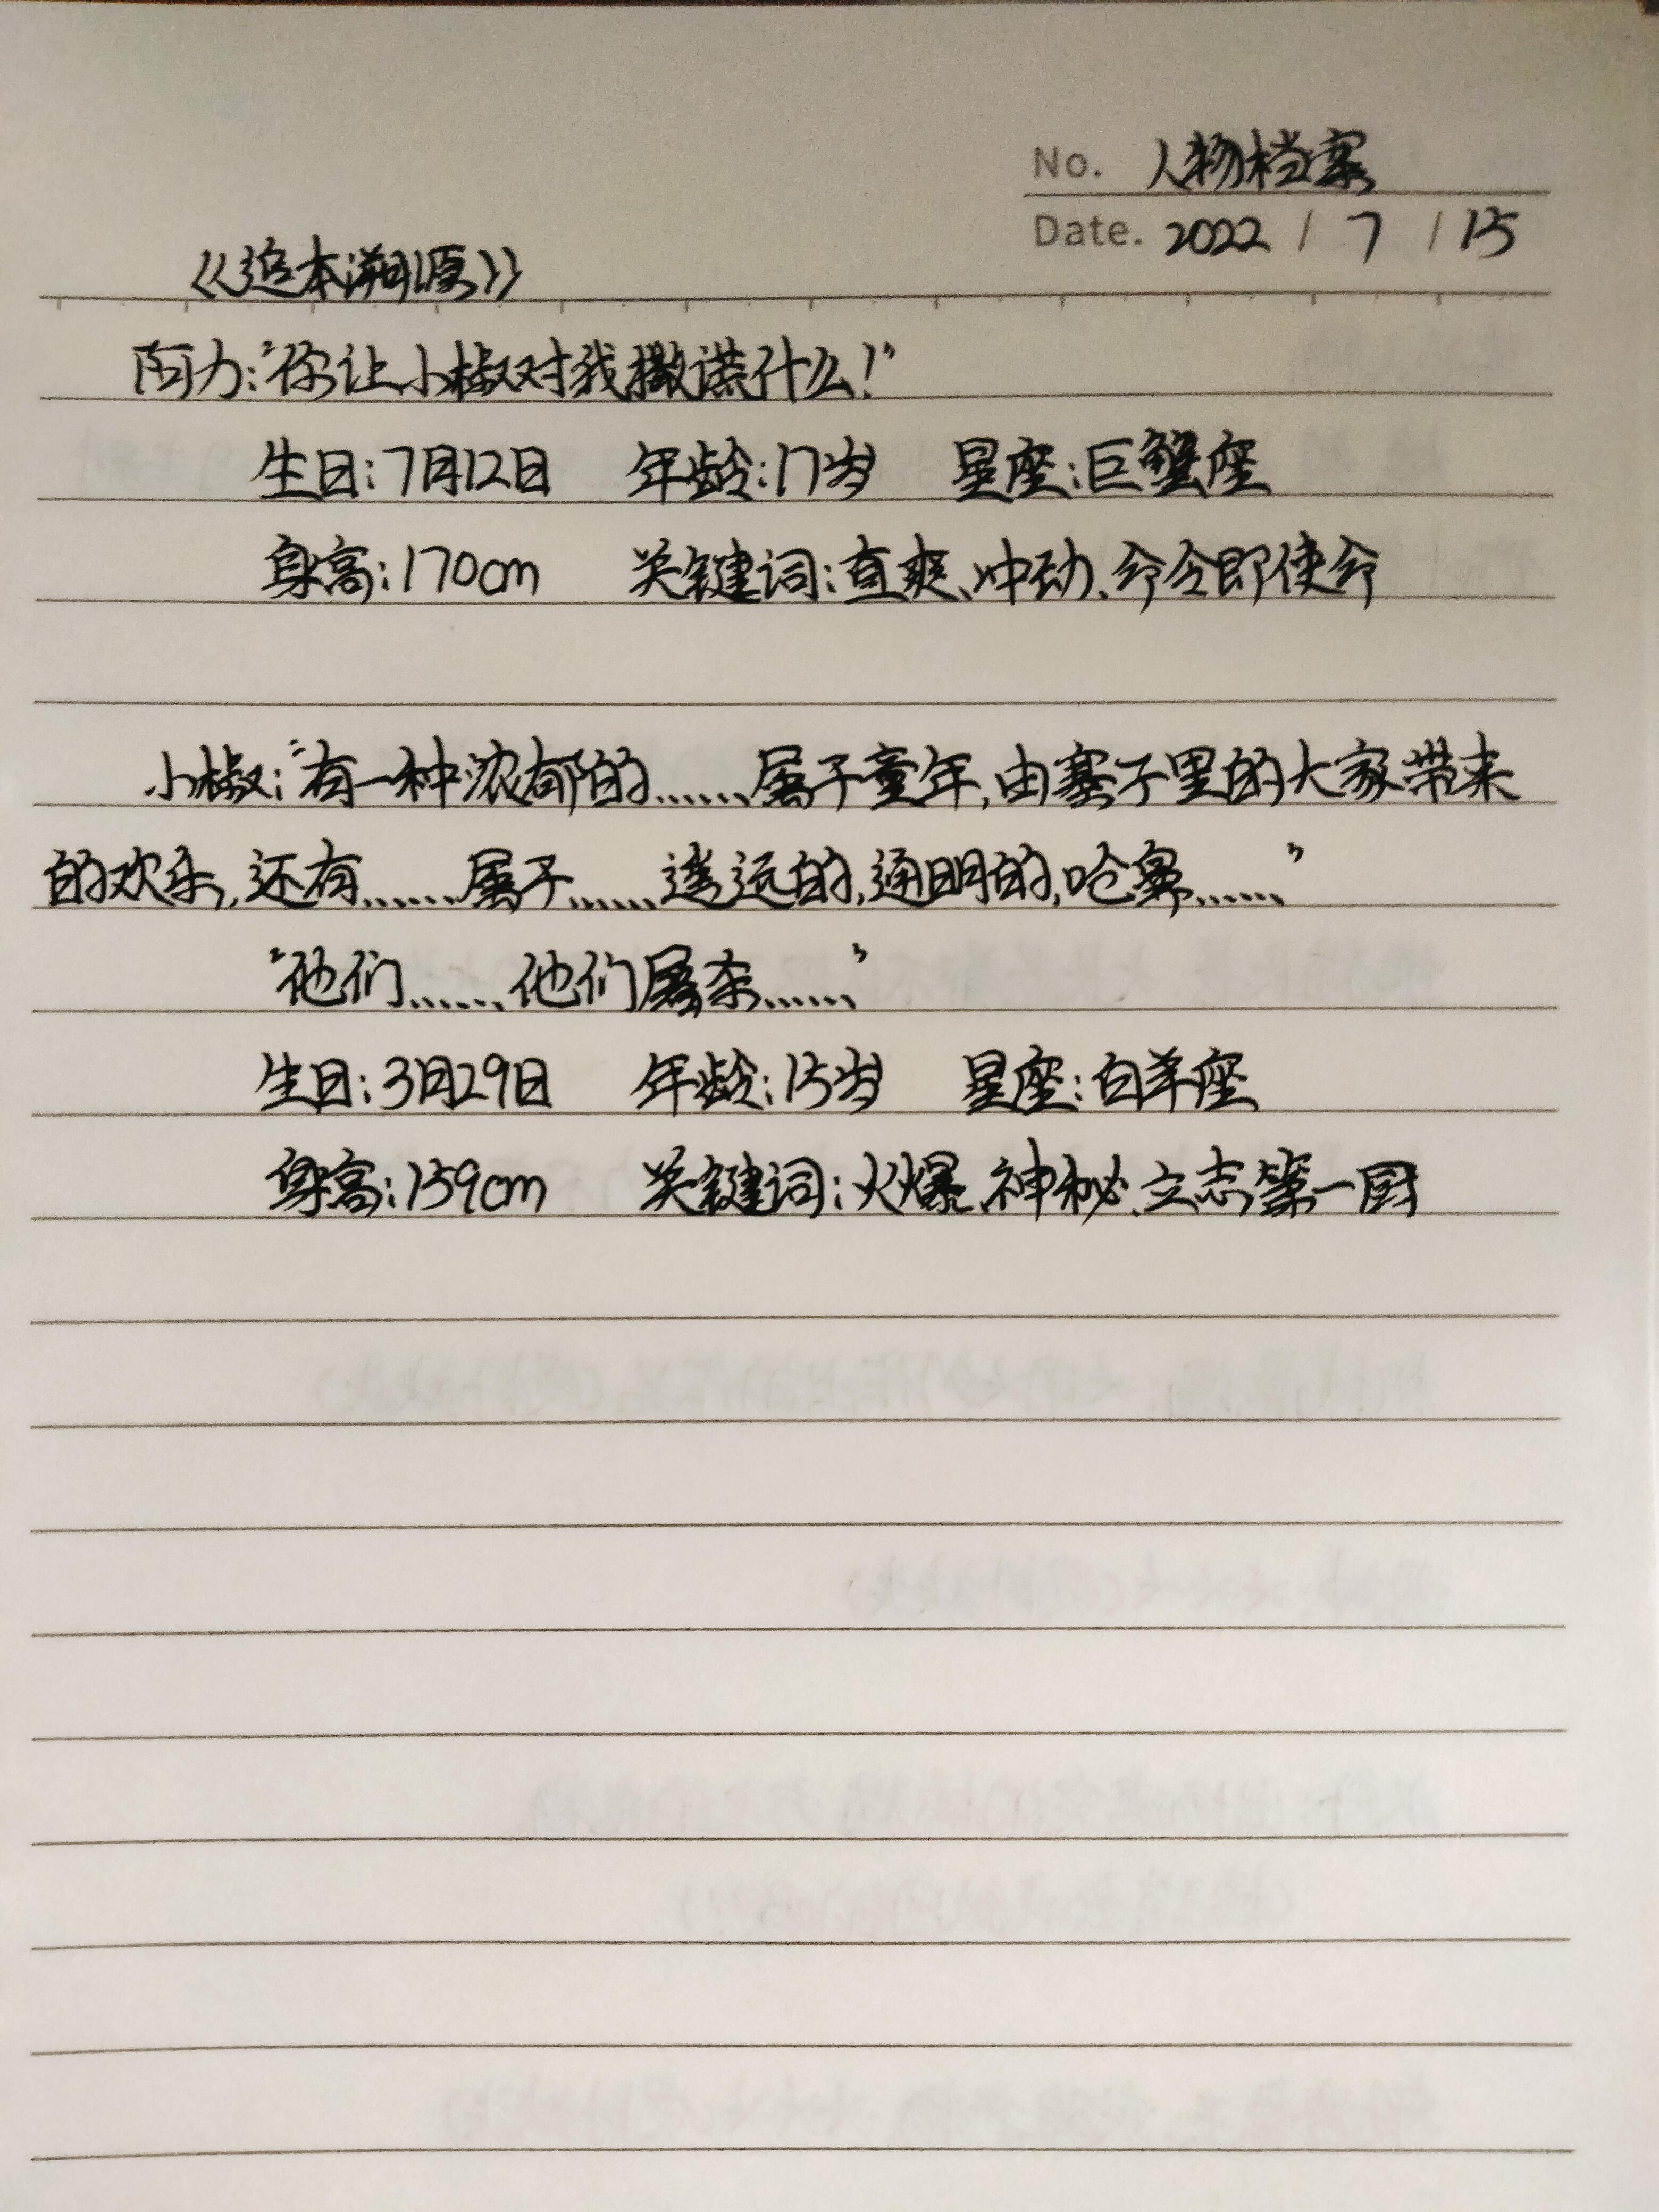 No. 人物档案
Date. 2022 / 7 / 15
《追本溯源》
阿力:“你让小椒对我撒谎什么!”
生日:7月12日 年龄:17岁 星座:巨蟹座
身高:170cm 关键词:直爽、冲动、兮今即使兮
小椒:“有一种浓郁的……属于童年,由寨子里的大家带来
的欢乐,还有……属于……遥远的,通明的,呛鼻……”
“他们……他们屠杀……”
生日:3月29日 年龄:15岁 星座:白羊座
身高:159cm 关键词:火爆、神秘、立志第一厨